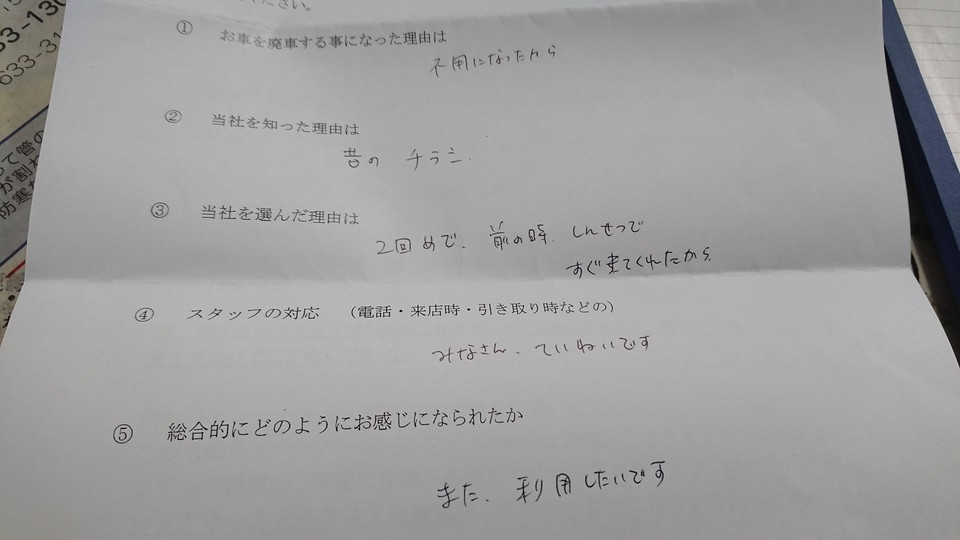 ください。
① お車を廃車する事になった理由は
不用になったから
② 当社を知った理由は
昔の チラシ.
③ 当社を選んだ理由は
2回めで、前の時、しんせつで
すぐ来てくれたから
④ スタッフの対応 （電話・来店時・引き取り時などの）
みなさん、ていねいです
⑤ 総合的にどのようにお感じになられたか
また、利用したいです